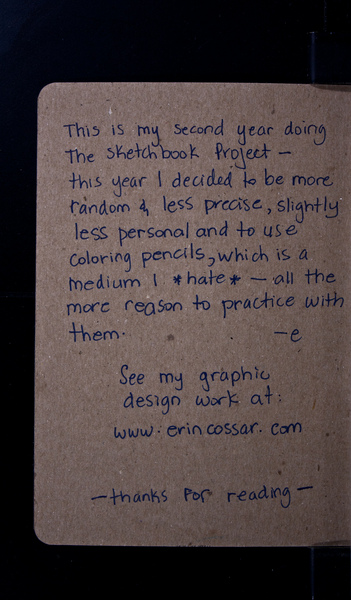 This is my second year doing
The Sketchbook Project —
this year I decided to be more
random & less precise, slightly
less personal and to use
coloring pencils, which is a
medium I *hate* — all the
more reason to practice with
them. —e
See my graphic
design work at:
www.erincossar.com
—thanks for reading—